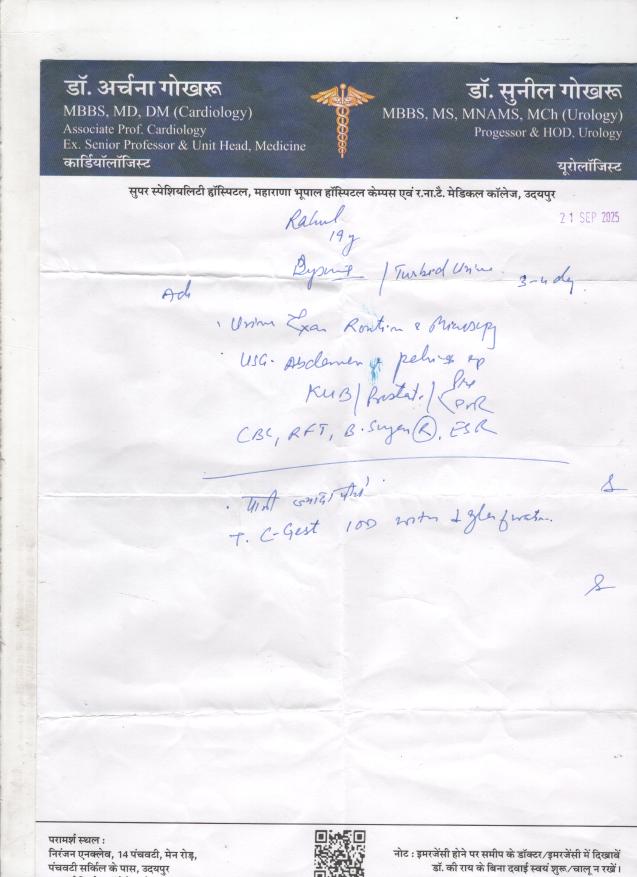 डॉ. अर्चना गोखरू
MBBS, MD, DM (Cardiology)
Associate Prof. Cardiology
Ex. Senior Professor & Unit Head, Medicine
कार्डियॉलॉजिस्ट
डॉ. सुनील गोखरू
MBBS, MS, MNAMS, MCh (Urology)
Progessor & HOD, Urology
यूरोलॉजिस्ट
सुपर स्पेशियलिटी हॉस्पिटल, महाराणा भूपाल हॉस्पिटल केम्पस एवं र.ना.टै. मेडिकल कॉलेज, उदयपुर
21 SEP 2025
Rahul
19 y
/ Turbid Urine
3-4 day
Adv
Urine Exam Routine & Microscopy
USG. Abdomen & pelvis
KUB / Prostate / Pre
PVR
CBC, RFT, B. Sugar (R), ESR
पानी ज्यादा पीवें
T. 1OD with 1 glass of water
परामर्श स्थल :
निरंजन एनक्लेव, 14 पंचवटी, मेन रोड़,
पंचवटी सर्किल के पास, उदयपुर
नोट : इमरजेंसी होने पर समीप के डॉक्टर/इमरजेंसी में दिखावें
डॉ. की राय के बिना दवाई स्वयं शुरू/चालू न रखें।